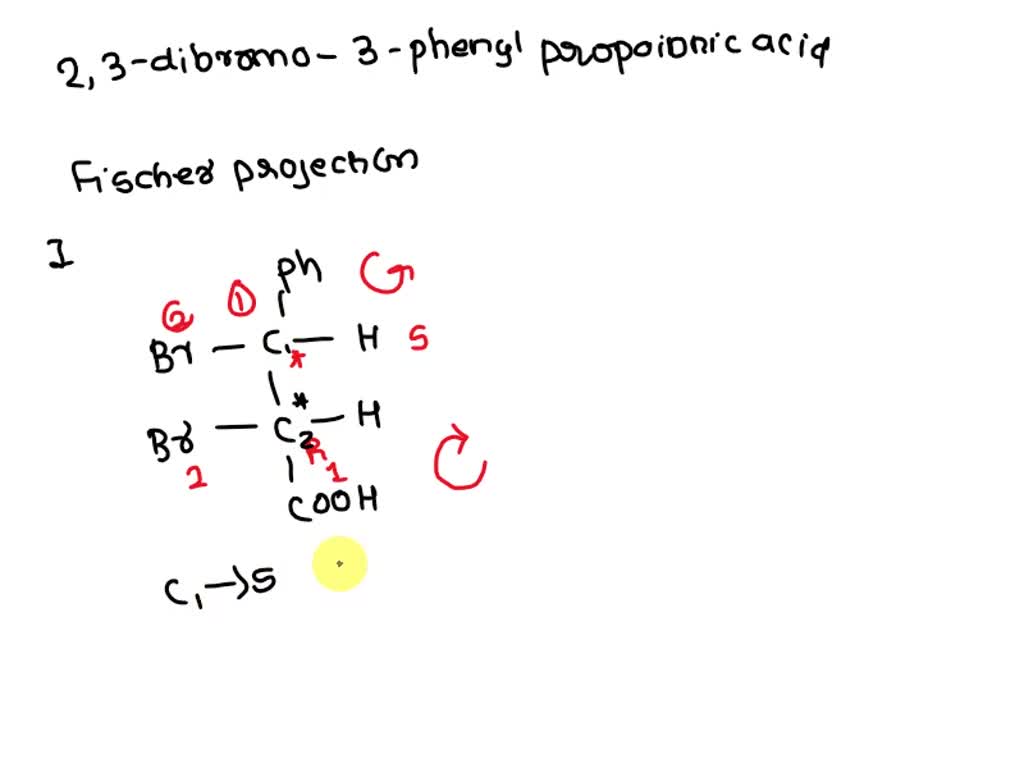 2,3-dibromo-3-phenyl propoionic acid
Fischer projection
I
Ph
2 1
Br - C1* - H S
Br - C2* - H
2 R 1
COOH
C1 → S